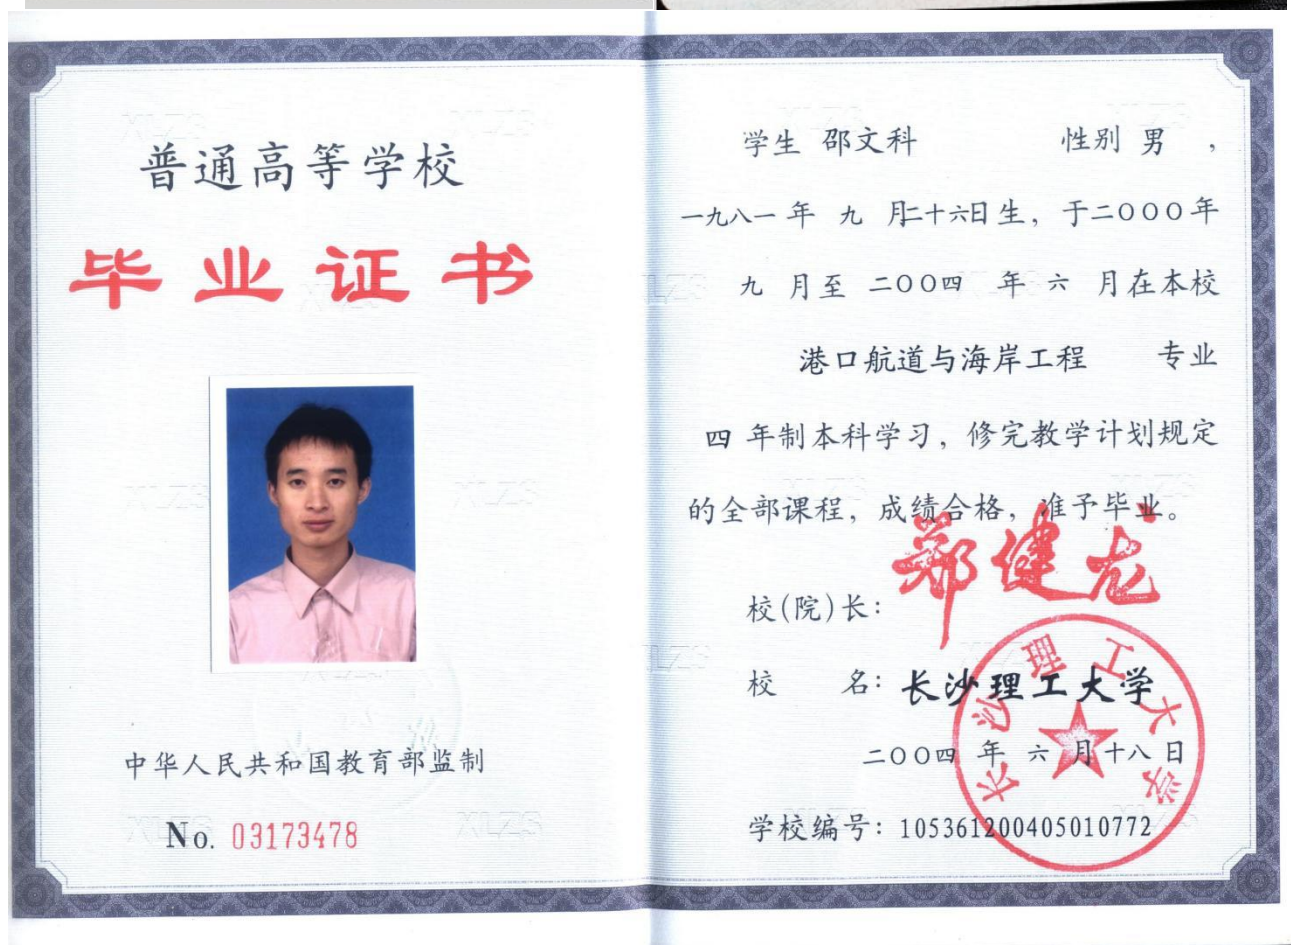 普通高等学校
毕业证书
中华人民共和国教育部监制
No. 03173478
学生 邵文科 性别 男 ，
一九八一 年 九 月二十六日生，于二〇〇〇年
九 月至 二〇〇四 年 六 月在本校
港口航道与海岸工程 专业
四 年制本科学习，修完教学计划规定
的全部课程，成绩合格，准予毕业。
郑健龙
校(院)长：
校 名：长沙理工大学
二〇〇四 年 六 月十八日
学校编号：105361200405010772
长沙理工大学
XLZS